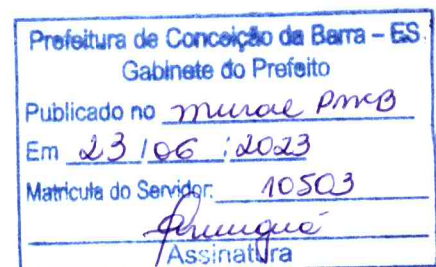 Prefeitura de Conceição da Barra – ES
Gabinete do Prefeito
Publicado no mural PMCB
Em 23/06/2023
Matrícula do Servidor: 10503
Assinatura